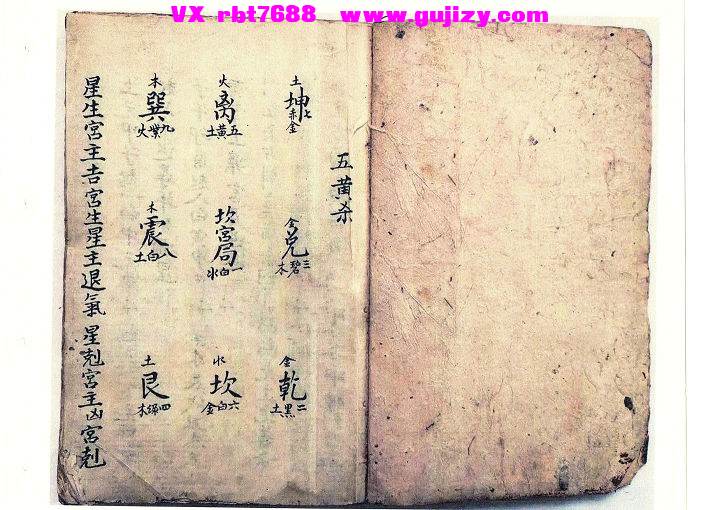 VX rbt7688   www.gujizy.com
五黄杀
土
坤
七赤金
火
离
五黄土
木
巽
九紫火
金
兑
三碧木
坎宫局
一白水
木
震
八白土
金
乾
二黑土
水
坎
六白金
土
艮
四綠木
星生宮主吉宮生星主退氣 星尅宮主凶宮尅